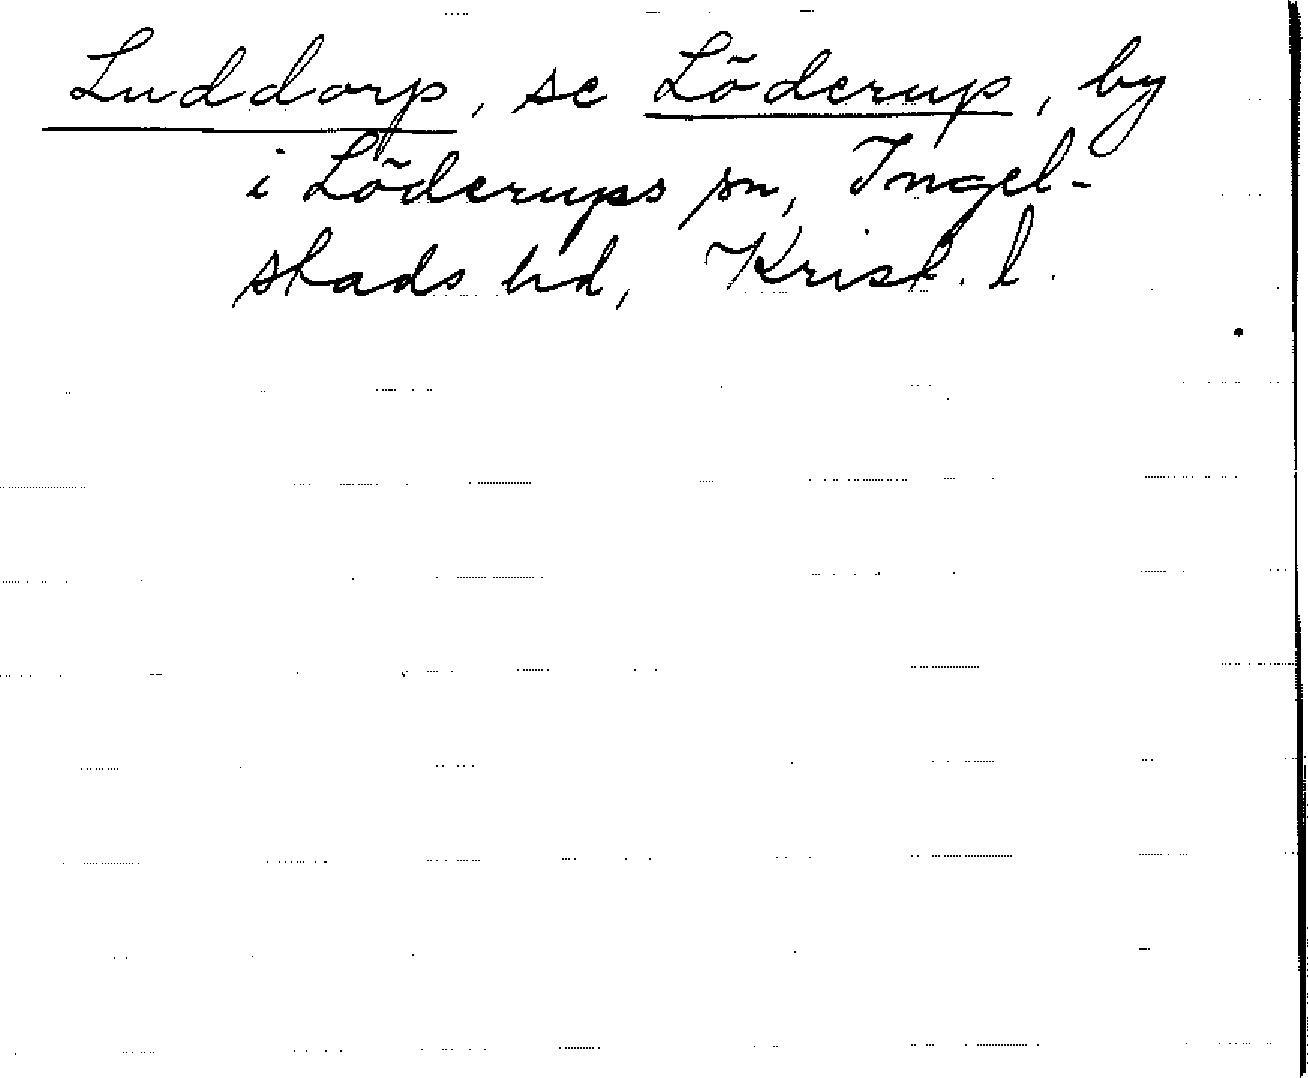 Luddorp, se Löderup, by
i Löderups sn, Ingel-
stads hd, Krist. l.